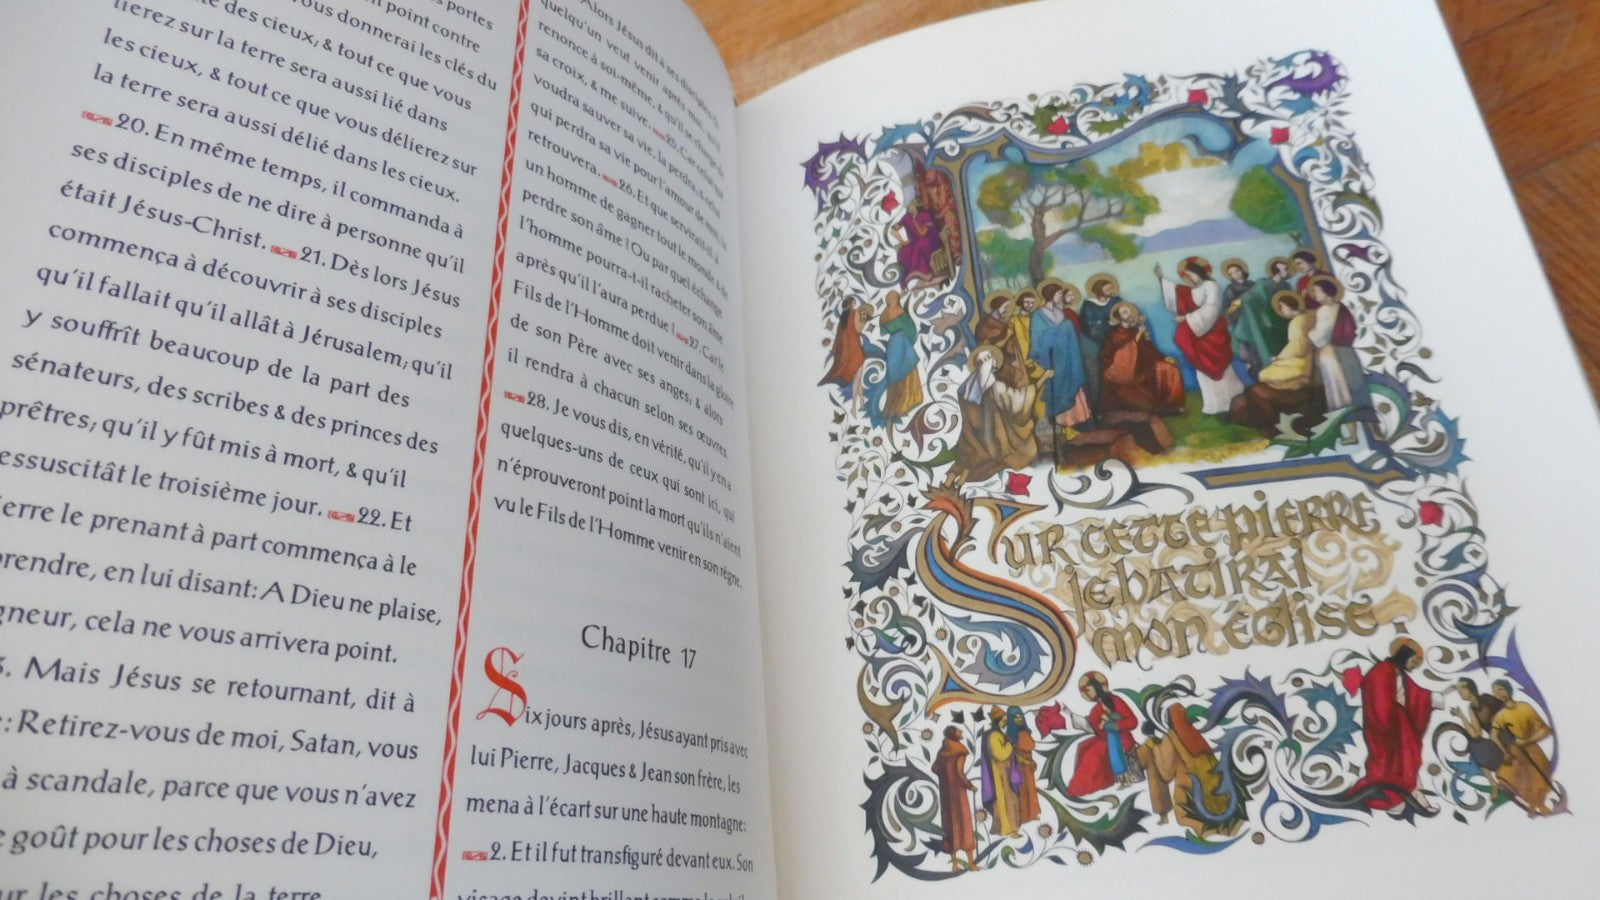 portes
point contre
e des cieux; & tout ce que vous
vous donnerai les clés du
lierez sur la terre sera aussi lié dans
les cieux, & tout ce que vous délierez sur
la terre sera aussi délié dans les cieux.
20. En même temps, il commanda à
ses disciples de ne dire à personne qu'il
était Jésus-Christ. 21. Dès lors Jésus
commença à découvrir à ses disciples
qu'il fallait qu'il allât à Jérusalem; qu'il
y souffrît beaucoup de la part des
sénateurs, des scribes & des princes des
prêtres; qu'il y fût mis à mort, & qu'il
essuscitât le troisième jour. 22. Et
ierre le prenant à part commença à le
prendre, en lui disant: A Dieu ne plaise,
gneur, cela ne vous arrivera point.
3. Mais Jésus se retournant, dit à
e: Retirez-vous de moi, Satan, vous
à scandale, parce que vous n'avez
e goût pour les choses de Dieu,
ur les choses de la terre
Alors Jésus dit à ses disciples: Si
quelqu'un veut venir après moi, qu'il
renonce à soi-même, & qu'il se charge de
sa croix, & me suive. 25. Car celui qui
voudra sauver sa vie, la perdra; & celui
qui perdra sa vie pour l'amour de moi, la
retrouvera. 26. Et que servirait-il à
un homme de gagner tout le monde & de
perdre son âme? Ou par quel échange
l'homme pourra-t-il racheter son âme
après qu'il l'aura perdue? 27. Car le
Fils de l'Homme doit venir dans la gloire
de son Père avec ses anges; & alors
il rendra à chacun selon ses œuvres.
28. Je vous dis, en vérité, qu'il y en a
quelques-uns de ceux qui sont ici, qui
n'éprouveront point la mort qu'ils n'aient
vu le Fils de l'Homme venir en son règne.
Chapitre 17
Six jours après, Jésus ayant pris avec
lui Pierre, Jacques & Jean son frère, les
mena à l'écart sur une haute montagne;
2. Et il fut transfiguré devant eux. Son
visage devint brillant comme le soleil
Sur cette pierre
je batirai
mon église